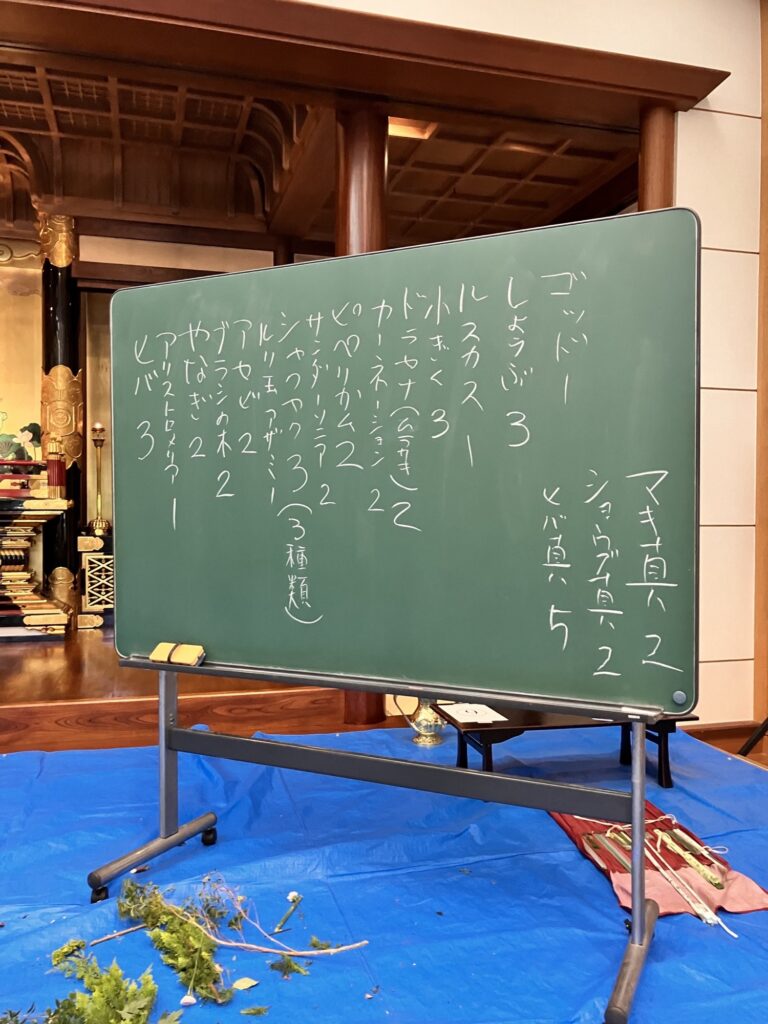 マキ真 2
ショウブ真 2
ヒバ真 5
ゴッド 1
しょうぶ 3
ルスカス 1
小ぎく 3
ドラセナ(ムラサキ) 2
カーネーション 2
ヒペリカム 2
サンダーソニア 2
シャクヤク 3(3種類)
ルリ玉アザミ 1
アセビ 2
ブラシの木 2
やなぎ 2
アリストロメリア 1
ヒバ 3